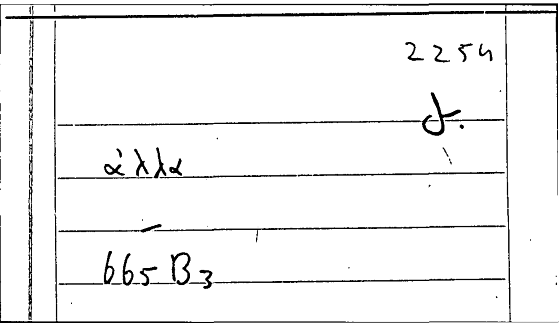 2254
ἀλλα
665 B3